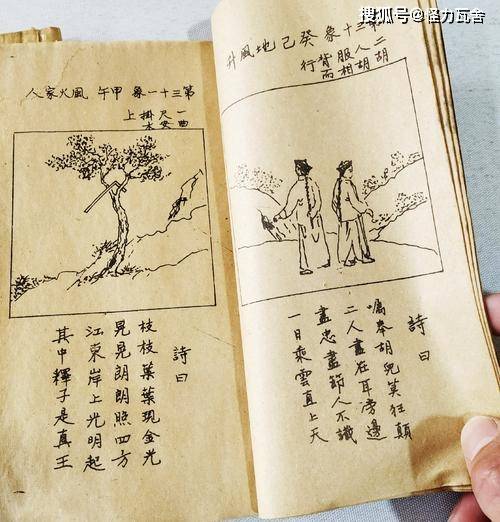 搜狐号@怪力瓦舍
第三十象 癸巳 地風升
二胡人胡服相背而行
詩曰
囑奉胡兒莫狂顛
二人盡在耳旁邊
盡忠盡節人不識
一日乘雲直上天
第三十一象 甲午 風火家人
一曲尺安掛木上
詩曰
枝枝葉葉現金光
晃晃朗朗照四方
江東岸上光明起
其中釋子是真王